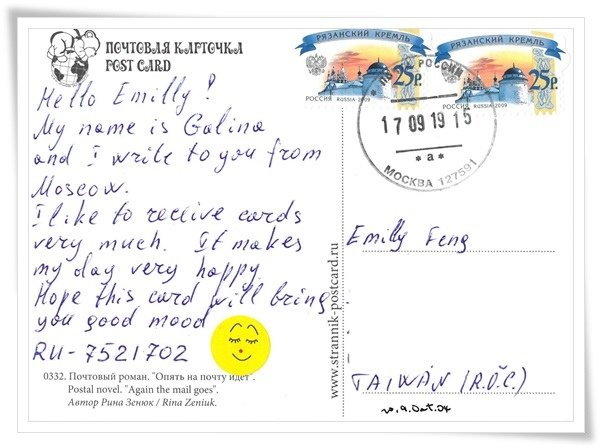 ПОЧТОВАЯ КАРТОЧКА
POST CARD
Hello Emilly!
My name is Galina
and I write to you from
Moscow.
I like to receive cards
very much. It makes
my day very happy
Hope this card will bring
you good mood
RU-7521702
0332. Почтовый роман. "Опять на почту идет".
Postal novel. "Again the mail goes".
Автор Рина Зенюк / Rina Zeniuk.
www.strannik-postcard.ru
РЯЗАНСКИЙ КРЕМЛЬ
25р.
РОССИЯ RUSSIA 2009
РЯЗАНСКИЙ КРЕМЛЬ
25р.
РОССИЯ RUSSIA 2009
РОССИИ
17 09 19 15
*а*
МОСКВА 127591
Emilly Feng
TAIWAN (R.O.C.)